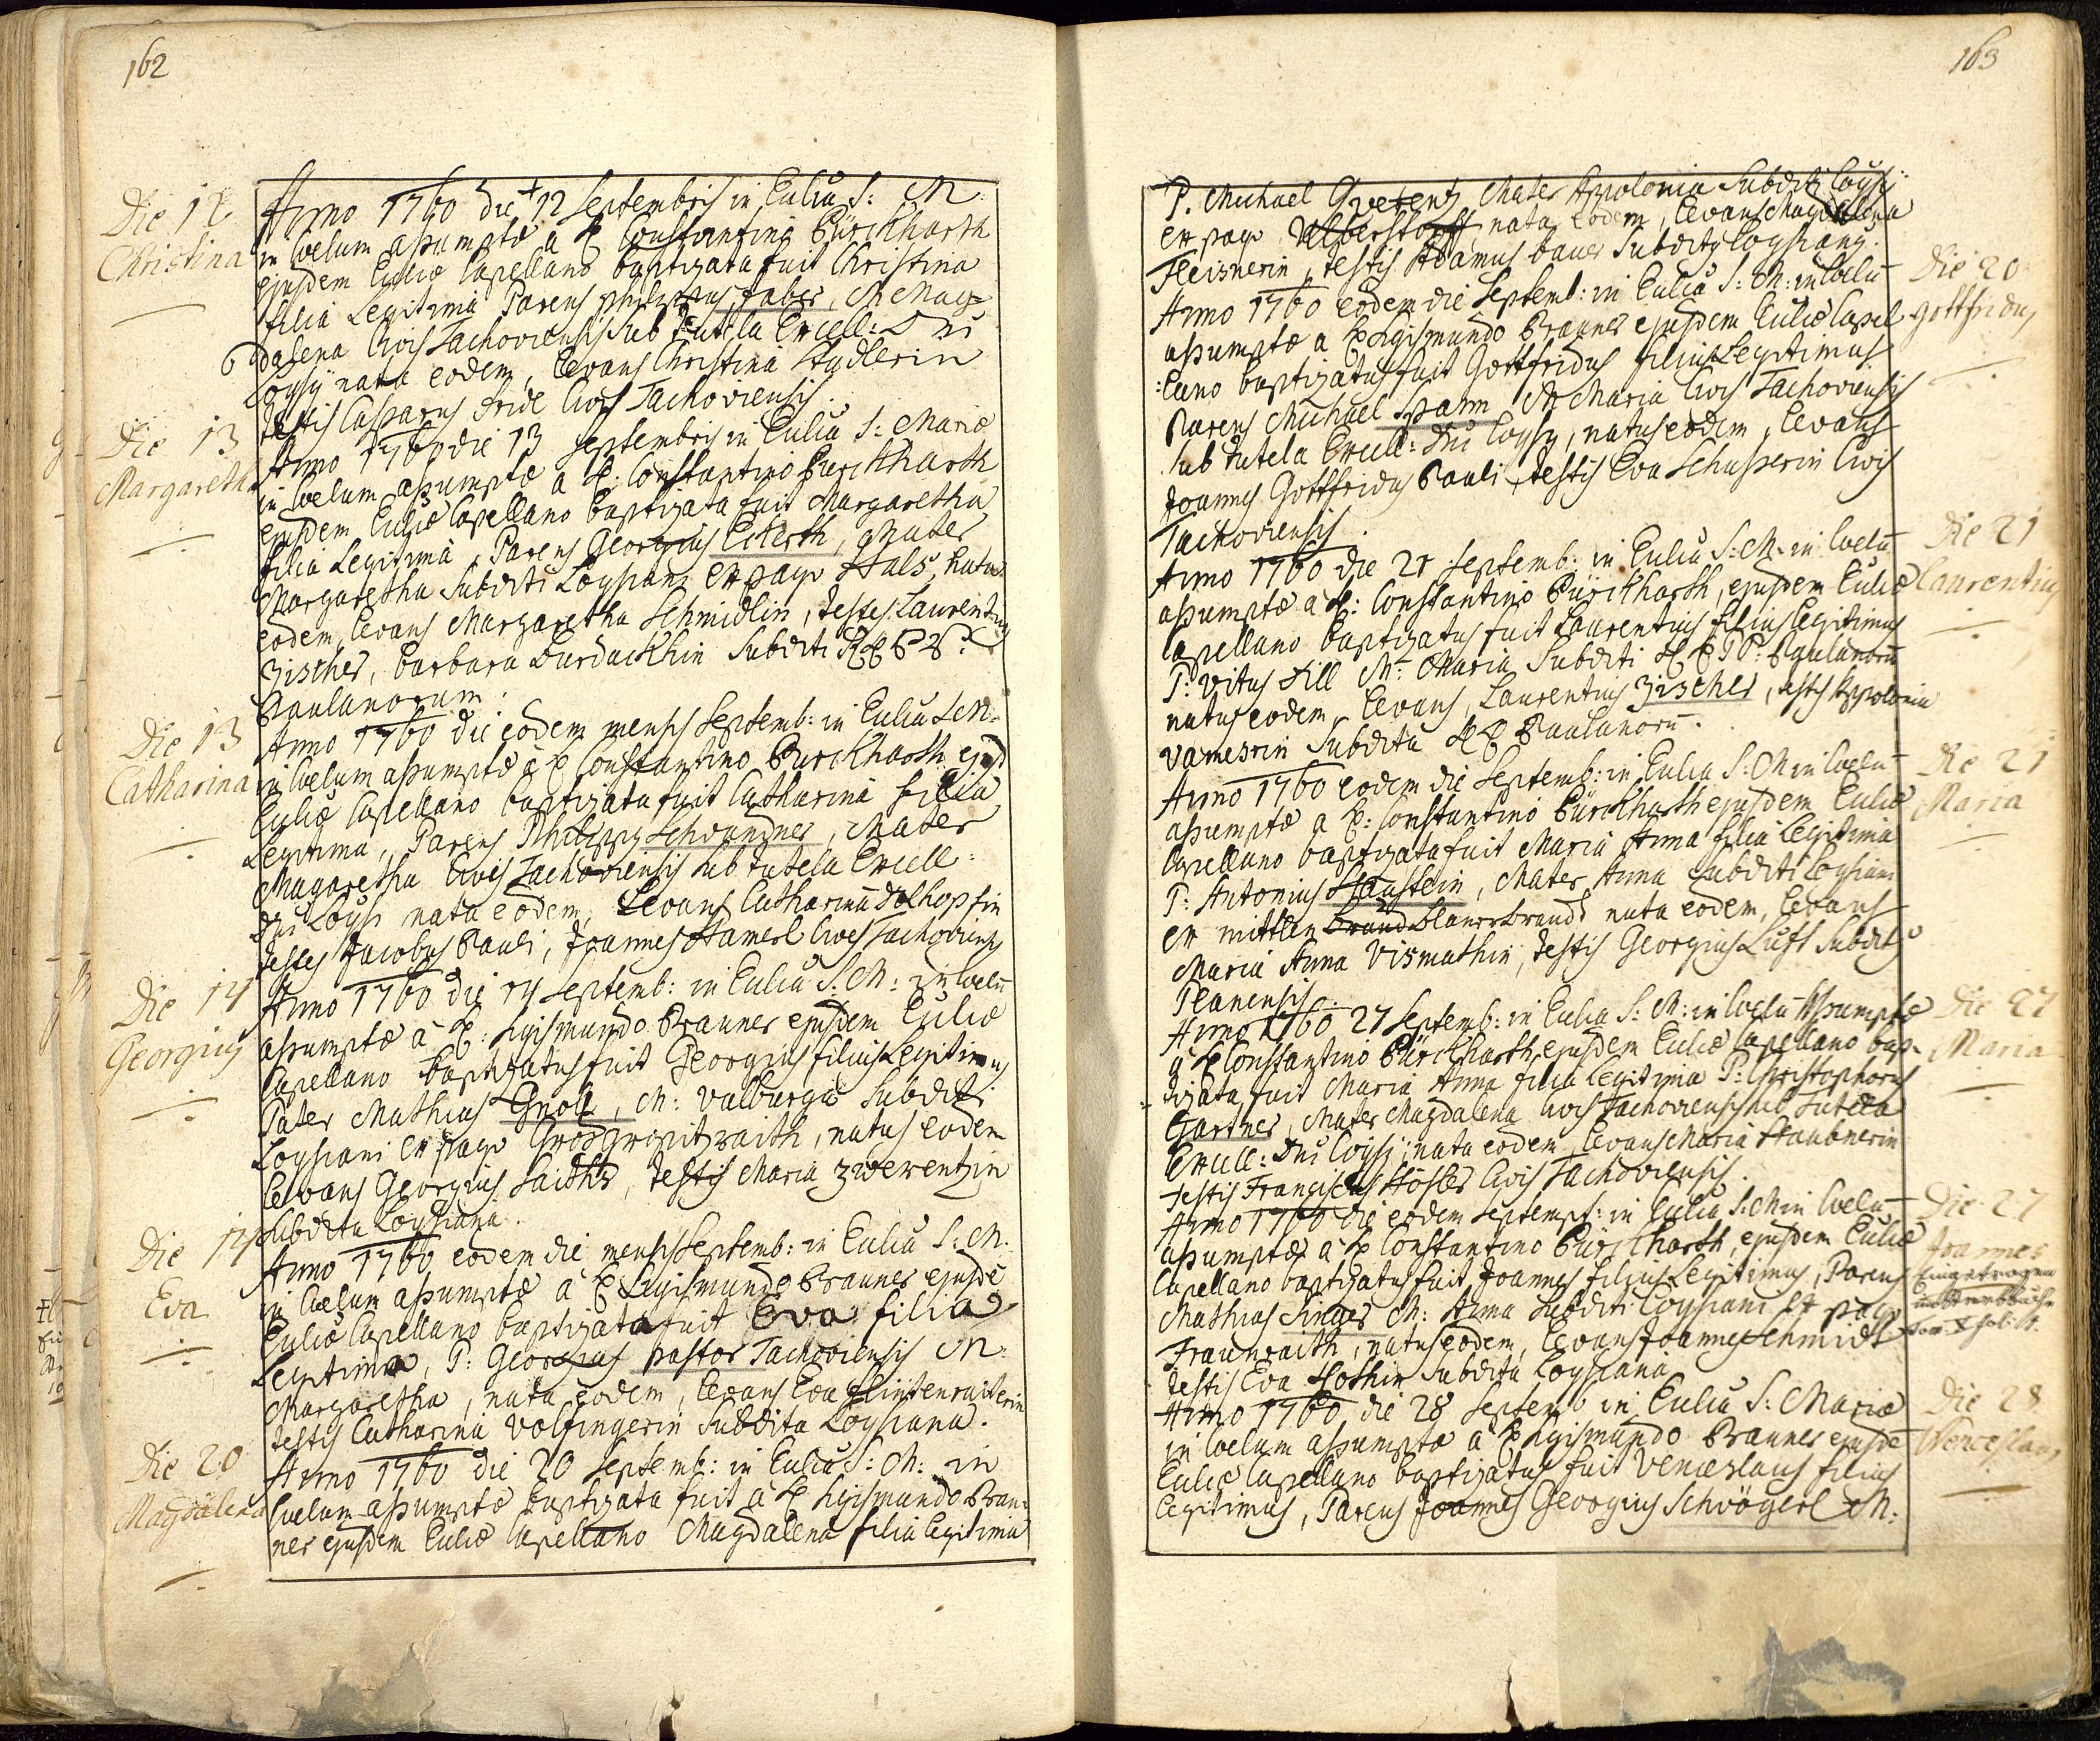 162
Die 12
Christina
Anno 1760 die 12 Septembris in Eccliâ S: M:
in Coelum assumptæ a P Constantino Bürckharth
ejusdem Eccliæ Capellano baptizata fuit Christina
filia Legitima Parens philippus faber, M Mag=
dalena Civis Tachoviensis sub Tutela Excell: Dni
Losÿ nata eodem, levans Christina
testis Casparus Civis Tachoviensis.
Die 13
Margaretha
Anno 1760 die 13 Septembris in Eccliâ S: Mariæ
in Coelum assumptæ a P: Constantino Burckharth
ejusdem Eccliæ Capellano baptizata fuit Margaretha
filia Legitima, Parens Georgius Ederth, Mater
Margaretha Subditi Losyiani ex pago Hals, nata
eodem, levans Margaretha Schmidlin, testes Laurentius
Zischer, Barbara Burdackhin Subditi
Paulanorum.
Die 13
Catharina
Anno 1760 die eodem mensis Septemb: in Eccliâ S M:
in Coelum assumptæ à P Constantino Burckharth ejusd
Eccliæ Capellano baptizata fuit Catharina filia
Legitima, Parens Philippus Schwandner, Mater
Magaretha Civis Tachoviensis sub tutela Excell:
Dni Losÿ nata eodem, Levans Catharina Dolhopfin
testes Jacobus Pauli, Joannes Hamerl Cives Tachovienses
Die 14
Georgius
Anno 1760 die 14 Septemb: in Eccliâ S. M: in Coelu
assumptæ à P: Sigismundo Brauner ejusdem Eccliæ
Capellano baptizatus fuit Georgius filius Legitimus
Pater Mathias Gnotz, M: Valburga Subditi
Losyiani ex pago Grosgropitzraith, natus eodem
levans Georgius, testis Maria Zwerentzin
subdita Losyiana.
Die 14
Eva
Anno 1760 eodem die mensis Septemb: in Eccliâ S: M.
in Coelum assumptæ à P Sigismundo Brauner ejusde
Eccliæ Capellano baptizata fuit Eva filia
Legitima, P: Georgius pastor Tachoviensis M:
Margaretha, nata eodem, levans Eva Flintenraiterin
testis Catharina Volfingerin Subdita Losyiana.
Die 20
Magdalena
Anno 1760 die 20 Septemb: in Eccliâ S: M: in
Coelum assumptæ baptizata fuit à P Sigismundo Brau=
ner ejusdem Eccliæ Capellano Magdalena filia Legitima
163
P. Michael Mater Appolonia Subditi Losÿ
ex pago Ulberstorff, nata eodem, levans Magdalena
Fleisnerin, testis Adamus bauer Subditus Losyianus.
Die 20
Gottfridus
Anno 1760 eodem die Septemb: in Eccliâ S: M: in Coelu
assumptæ a P Sigismundo Brauner ejusdem Eccliæ Capel
:lano baptizatus fuit Gottfridus filius Legitimus
Parens Michael Spann M Maria Civis Tachoviensis
sub tutela Excell: Dni Losÿ, natus eodem, levans
Joannes Gottfridus Pauli, testis Eva Schusserin Civis
Tachoviensis.
Die 21
Laurentius
Anno 1760 die 21 Septemb: in Eccliâ S: M: in Coelu
assumptæ à P: Constantino Bürckharth, ejusdem Eccliæ
Capellano baptizatus fuit Laurentius filius Legitimus
P: Vitus Till M: Maria Subditi P P: Paulanoru
natus eodem, levans, Laurentius Zischer, testis Appolonia
Vamesrin Subdita Paulanoru.
Die 21
Maria
Anno 1760 eodem die Septemb: in Ecclia S: M in Coelu
assumptæ a P: Constantino Bürckharth ejusdem Eccliæ
Capellano baptizata fuit Maria Anna filia Legitima
P: Antonius Haustein, Mater Anna Subditi Losyiani
ex mittlen brand Planer brandt nata eodem, levans
Maria Anna Vismathin, testis Georgius Luft Subditus
Planensis.
Die 27
Maria
Anno 1760 27 Septemb: in Ecclia S: M: in Coelu Assumptæ
à P Constantino Bürckharth ejusdem Eccliæ Capellano bap=
tizata fuit Maria Anna filia Legitima P: Christophorus
Gartner, Mater Magdalena Civis Tachoviensis sub tutela
Excell: Dni Losÿ, nata eodem, levans Maria Staubnerin
testis Franciscus Hösler Civis Tachoviensis.
Die 27
Joannes
Eingetragen
im Sterbbuche
Tom. X fol: 11.
Anno 1760 die eodem Septemb: in Ecclia S: M in Coelu
assumptæ à P Constantino Bürckharth, ejusdem Eccliæ
Capellano baptizatus fuit, Joannes filius Legitimus, Parens
Mathias Singer M: Anna Subditi Losyiani ex pago
Fraunraith, natus eodem, levans Joannes Schmidt
testis Eva Hothin Subdita Losyiana
Die 28
Wenceslaus
Anno 1760 die 28 Septemb in Eccliâ S: Mariæ
in Coelum assumptæ à P Sigismundo Brauner ejusde
Eccliæ Capellano baptizatus fuit Venceslaus filius
Legitimus, Parens Joannes Georgius Schvögerl M: